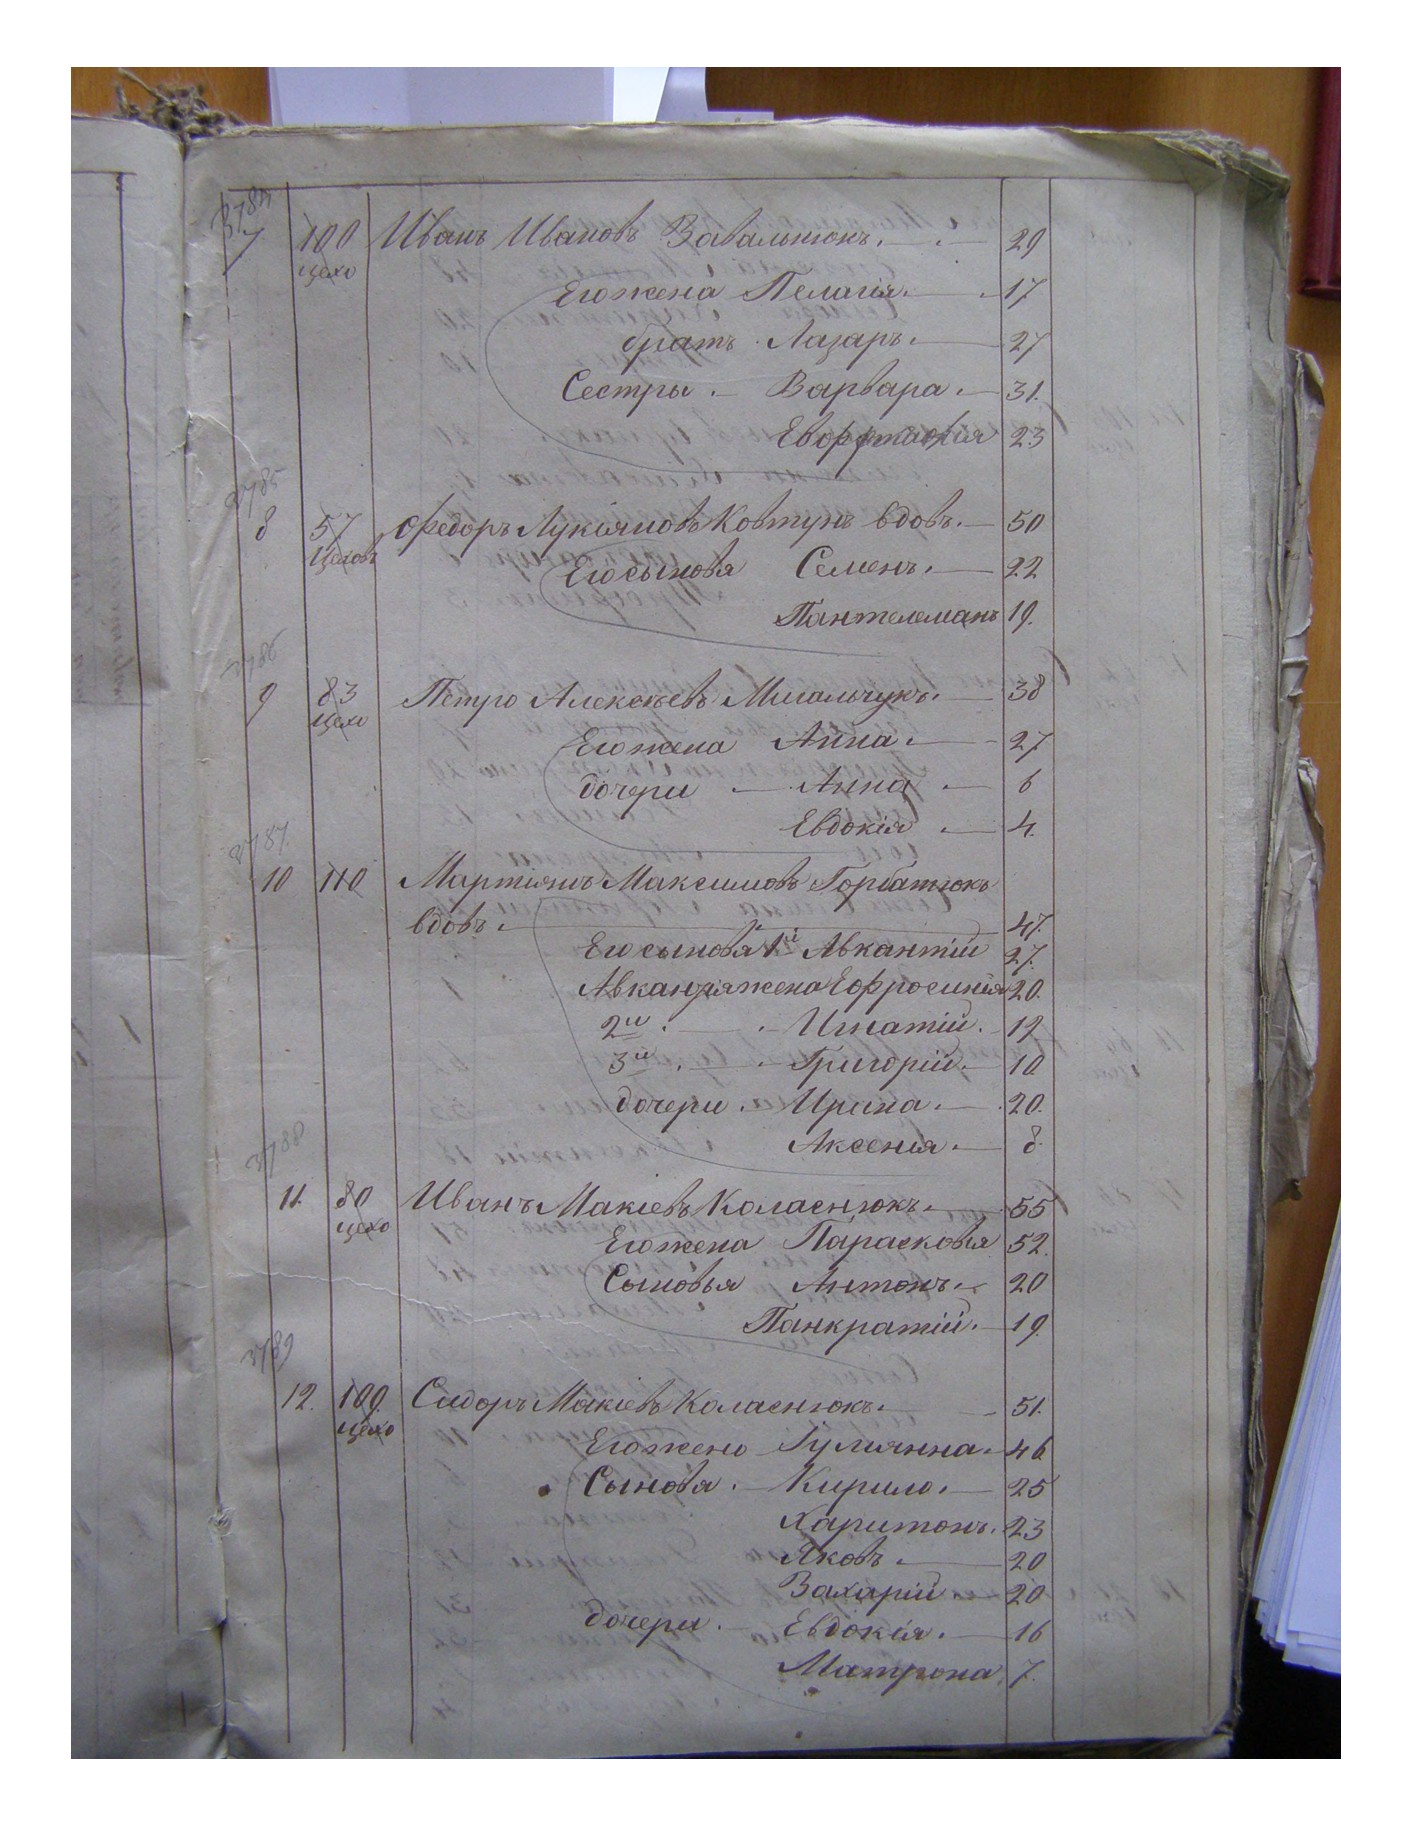 3784
7 100 Иванъ Ивановъ Завальнюкъ. 29
цехо
Его жена Пелагія. 17
братъ Лазаръ. 27
Сестры. Варвара. 31.
23
3785
8 57 Федоръ Лукіяновъ Ковтунъ вдовъ. 50
Цеховъ
Его сыновя Семенъ. 22
Пантелеманъ 19.
3786
9 83 Петро Алексѣевъ Михальчукъ. 38
цехо
Его жена Анна. 27
дочери Анна 6
Евдокія 4.
3787.
10 110 Мартіянъ Максимовъ Горбатюкъ
вдовъ. 47.
Его сыновя 1й Авкантій 27.
жена Ефросинія 20.
2й. Игнатій. 12
3й. Григорій. 10
дочери. Ирина. 20.
Аксенія. 8.
3788
11. 80 Иванъ Макіевъ Каласнюкъ. 55
цехо
Его жена Парасковія 52.
Сыновья Антонъ. 20
Панкратій. 19.
3789
12. 100. Сидоръ Макіевъ Каласнюкъ. 51.
цехо
Его жено Іулиянна. 46
Сыновя. Кирило. 25
Харитонъ. 23
Яковъ. 20
Захарій. 20
дочери. Евдокія. 16
Матрона 7.